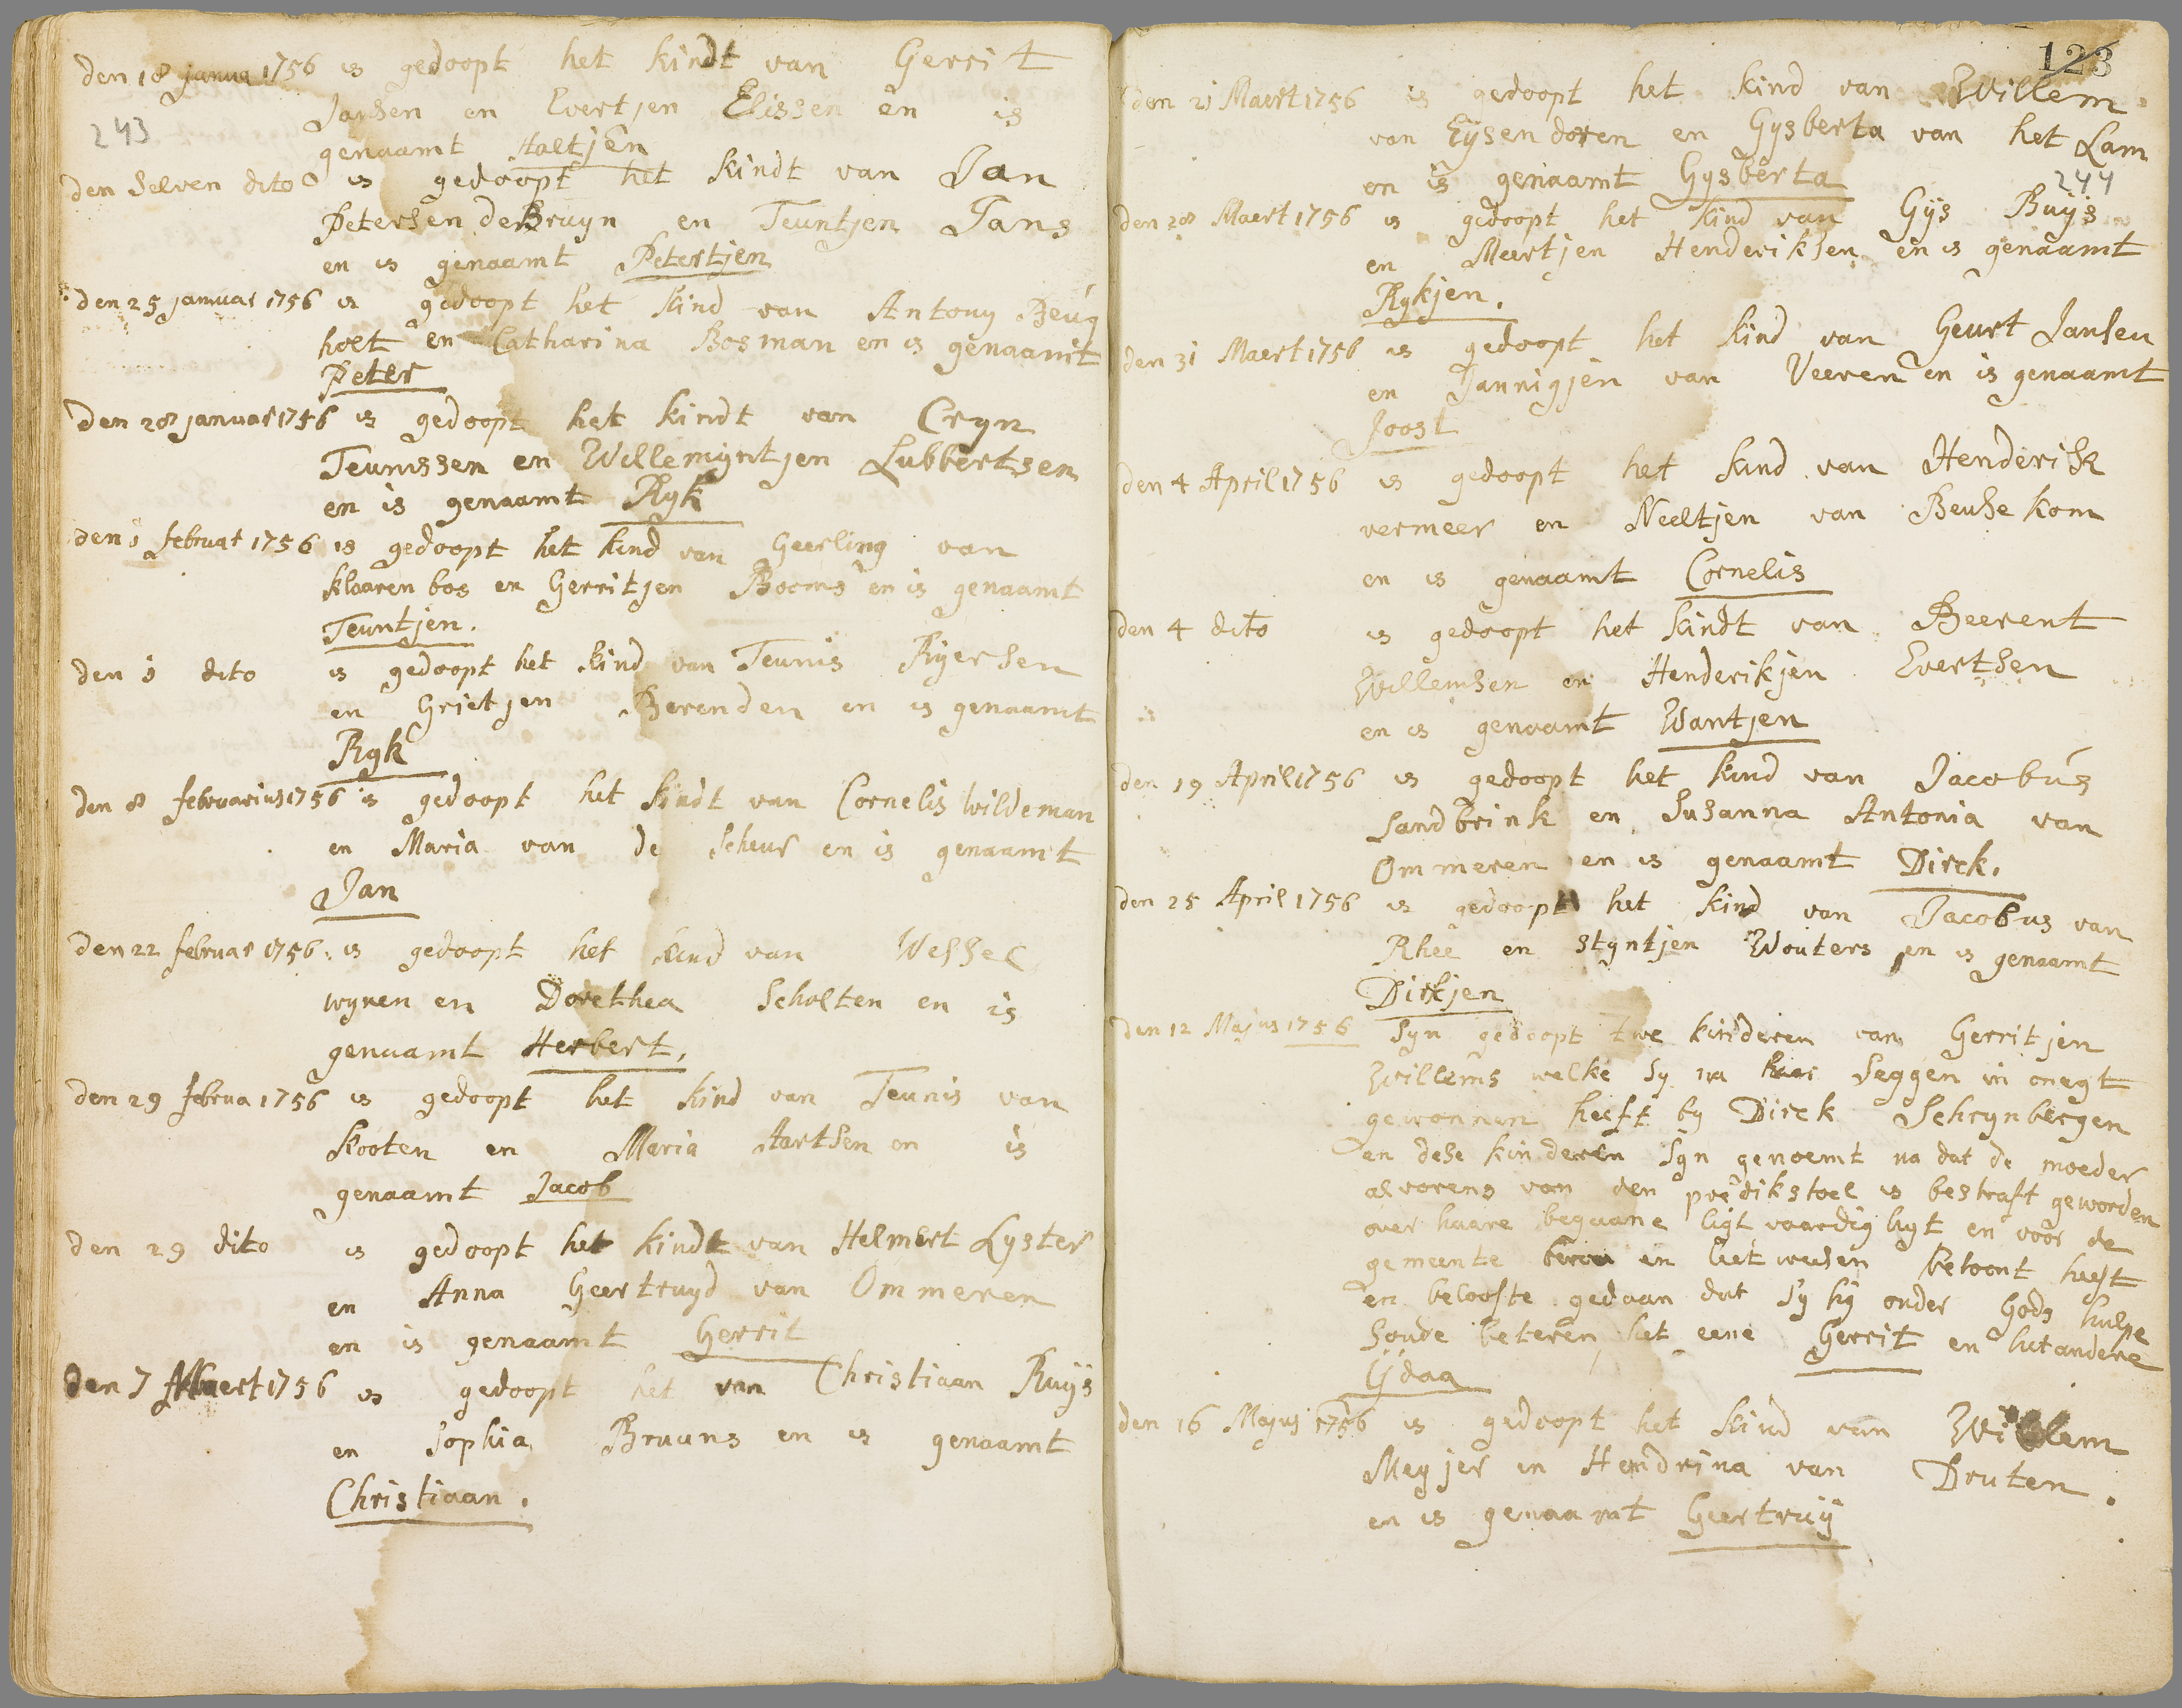 den 18 janua 1756 is gedoopt het kindt van Gerrit
Jansen en Evertjen Elissen en is
243
genaamt Aaltjen
den selven dito is gedoopt het kindt van Jan
Petersen de Bruyn en Teuntjen Jans
en is genaamt Petertjen
den 25 januar 1756 is gedoopt het kind van Antony Beug
holt en Catharina Bosman en is genaamt
Peter
den 28 januar 1756 is gedoopt het kindt van Cryn
Teunissen en Willemijntjen Lubbertsen
en is genaamt Ryk
den 1 februar 1756 is gedoopt het kind van Geerling van
klaarenbos en Gerritjen Booms en is genaamt
Teuntjen.
den 1 dito is gedoopt het kind van Teunis Ryersen
en Grietjen Berenden en is genaamt
Ryk
den 8 februarius 1756 is gedoopt het kindt van Cornelis Wildeman
en Maria van de Scheur en is genaamt
Jan
den 22 februar 1756. is gedoopt het kind van Wessel
wynen en Dorethea Scholten en is
genaamt Herbert.
den 29 februa 1756 is gedoopt het kind van Teunis van
kooten en Maria Aartsen en is
genaamt Jacob
den 29 dito is gedoopt het kindt van Helmert Lyster
en Anna Geertruyd van Ommeren
en is genaamt Gerrit
den 7 Maert 1756 is gedoopt het van Christiaan Ruys
en Sophia Bruuns en is genaamt
Christiaan.
123
den 21 Maert 1756 is gedoopt het kind van Willem
van Eysendoren en Gysberta van het Lam
en is genaamt Gysberta
244
den 28 Maert 1756 is gedoopt het kind van Gijs Buijs
en Meertjen Henderiksen en is genaamt
Rykjen.
den 31 Maert 1756 is gedoopt het kind van Geurt Jansen
en Jannigjen van Veeren en is genaamt
Joost
den 4 April 1756 is gedoopt het kind van Henderik
vermeer en Neeltjen van Beusekom
en is genaamt Cornelis
den 4 dito is gedoopt het kindt van Beerent
Willemsen en Henderikjen Evertsen
en is genaamt Wantjen
den 19 April 1756 is gedoopt het kind van Jacobus
Sandbrink en Susanna Antonia van
Ommeren en is genaamt Dirck.
den 25 April 1756 is gedoopt het kind van Jacobus van
Rhee en Styntjen Wouters en is genaamt
Dirkjen
den 12 Majus 1756 Syn gedoopt twe kinderen van Gerritjen
Willems welke sy na haar seggen in onegt
gewonnen heeft by Dirck Schrynbergen
en dese kinderen syn genoemt na dat de moeder
alvorens van den predikstoel is bestraft geworden
over haare begaane ligtvaardighyt en voor de
gemeente berou en leetwesen betoont heeft
en belofte gedaan dat sy hy onder Gods hulpe
soude beteren het eene Gerrit en het andere
Ydaa
den 16 Majus 1756 is gedoopt het kind van Willem
Meyjer en Hendrina van Druten.
en is genaamt Geertruij